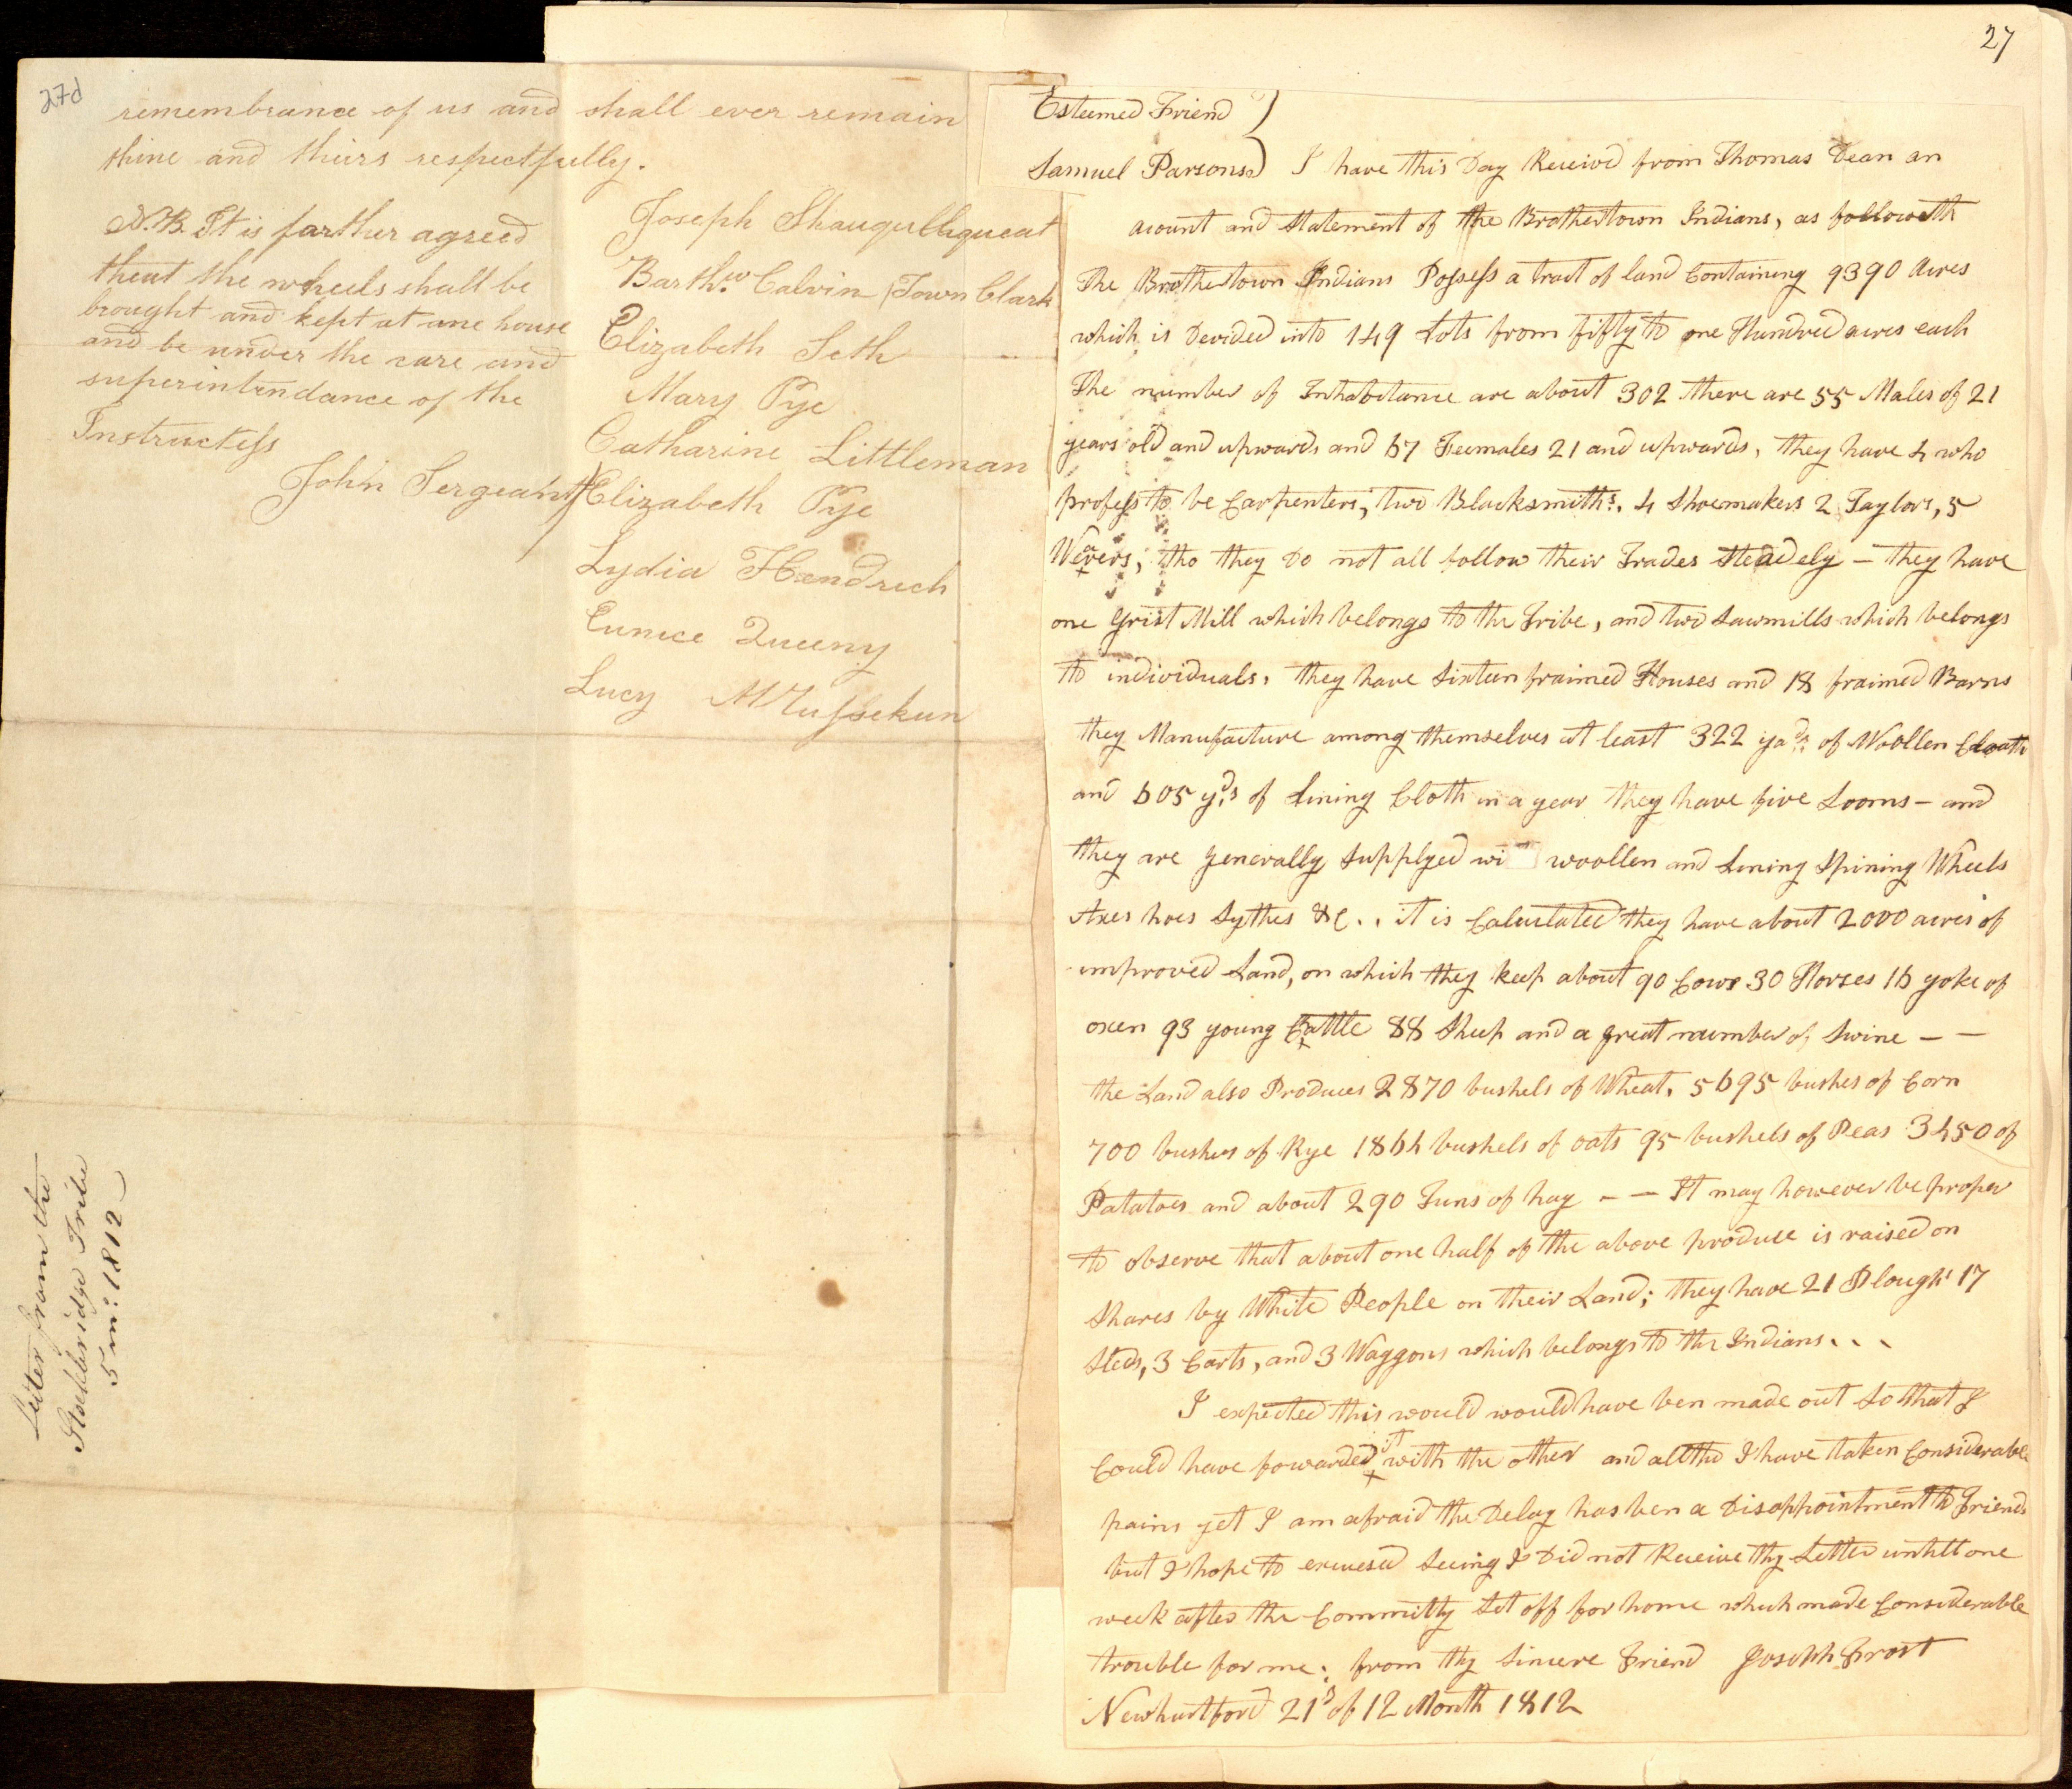 27d
remembrance of us and shall ever remain
thine and theirs respectfully.
N.B. It is farther agreed
that the wheels shall be
brought and kept at one house
and be under the care and
superintendance of the
Instructess
John Sergeant
Joseph Shauquthqueat
Barthw. Calvin Town Clark
Elizabeth Seth
Mary Pye
Catharine Littleman
Elizabeth Pye
Lydia Hendrick
Eunice Queeny
Lucy
Letter from the
Stockbridge Tribe
5 mo: 1812
27
Esteemed Friend
Samuel Parsons I have this Day Receivd from Thomas Dean an
acount and Statement of the Brothertown Indians, as followeth
The Brothertown Indians Possess a tract of land Containing 9390 Acres
which is Devided into 149 Lots from fifty to one Hundred acres each
The number of Inhabitance are about 302 there are 55 Males of 21
years old and upwards and 67 Feemales 21 and upwards, they have 4 who
profess to be Carpenters, two Blacksmiths. 4 Shoemakers 2 Taylors, 5
Weavers, tho they Do not all follow their Trades Steadely — they have
one Grist Mill which belongs to the Tribe, and two Sawmills which belongs
to individuals, they have Sixteen fraimed Houses and 18 fraimed Barns
they Manufacture among themselves at least 322 yads. of Woollen Cloath
and 605 yds of Lining Cloth in a year they have five Looms — and
they are generally Supplyed wi woollen and Lining Spining Wheels
Axes hoes Sythes &C. . it is Calculated they have about 2000 acres of
improved Land, on which they keep about 90 Cows 30 Horses 16 yoke of
oxen 93 young Cattle 88 Sheep and a great number of Swine — —
the Land also Produces 2870 bushels of Wheat, 5695 bushes of Corn
700 bushes of Rye 1864 bushels of oats 95 bushels of Peas 3450 of
Patatoes and about 290 Tuns of hay — — It may however be proper
to observe that about one half of the above produce is raised on
Shares by White People on their Land; they have 21 Ploughs 17
Sleds, 3 Carts, and 3 Waggons which belongs to the Indians. . .
I expected this would would have ben made out So that I
Could have fowarded it with the other and alltho I have taken Considerable
pains yet I am afraid the Delay has ben a Disappointment to Friends
but I hope to excuesed Seeing I Did not Receive thy Letter untill one
week after the Committy Set off for home which made Considerable
trouble for me. from thy Sincere Friend Joseph Frost
Newhartford 21s of 12 Month 1812